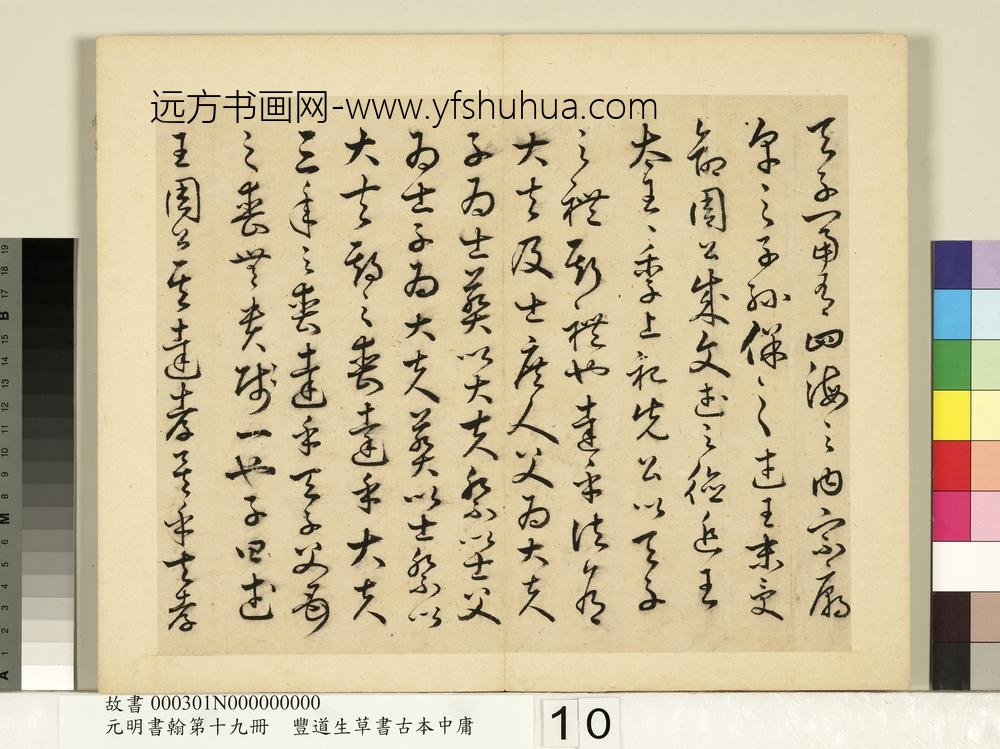 远方书画网-www.yfshuhua.com
天子富有四海之内宗廟
享之子孫保之武王末受
命周公成文武之德追王
太王〻季上祀先公以天子
之禮斯禮也達乎諸侯
大夫及士庶人父為大夫
子為士葬以大夫祭以士父
為士子為大夫葬以士祭以
大夫期之喪達乎大夫
三年之喪達乎天子父母
之喪無貴賤一也子曰武
王周公其達孝矣乎夫孝
故書 000301N000000000
元明書翰第十九冊 豐道生草書古本中庸
10
A 1 2 3 4 5 6 M 8 9 10 11 12 13 14 15 B 17 18 19